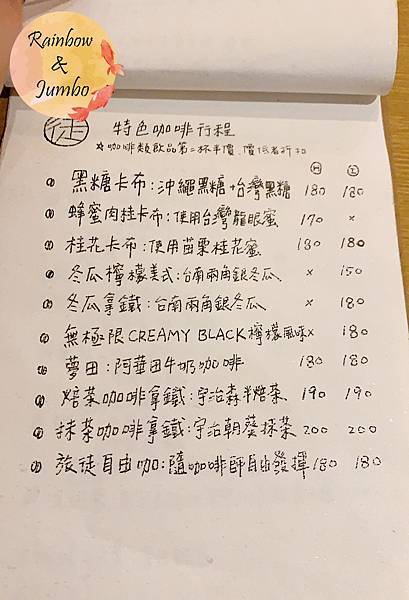 Rainbow
&
Jumbo
徒 特色咖啡行程
☆咖啡類飲品第二杯半價、價低者折扣
H I
黑糖卡布:沖繩黑糖+台灣黑糖 180 180
蜂蜜肉桂卡布:使用台灣龍眼蜜 170 ×
桂花卡布:使用苗栗桂花蜜 180 180
冬瓜檸檬美式:台南兩角銀冬瓜 × 150
冬瓜拿鐵:台南兩角銀冬瓜 × 180
無極限CREAMY BLACK檸檬風味 × 180
夢田:阿華田牛奶咖啡 180 180
焙茶咖啡拿鐵:宇治森半焙茶 190 190
抹茶咖啡拿鐵:宇治朝葵抹茶 200 200
旅徒自由咖:隨咖啡師自由發揮 180 180